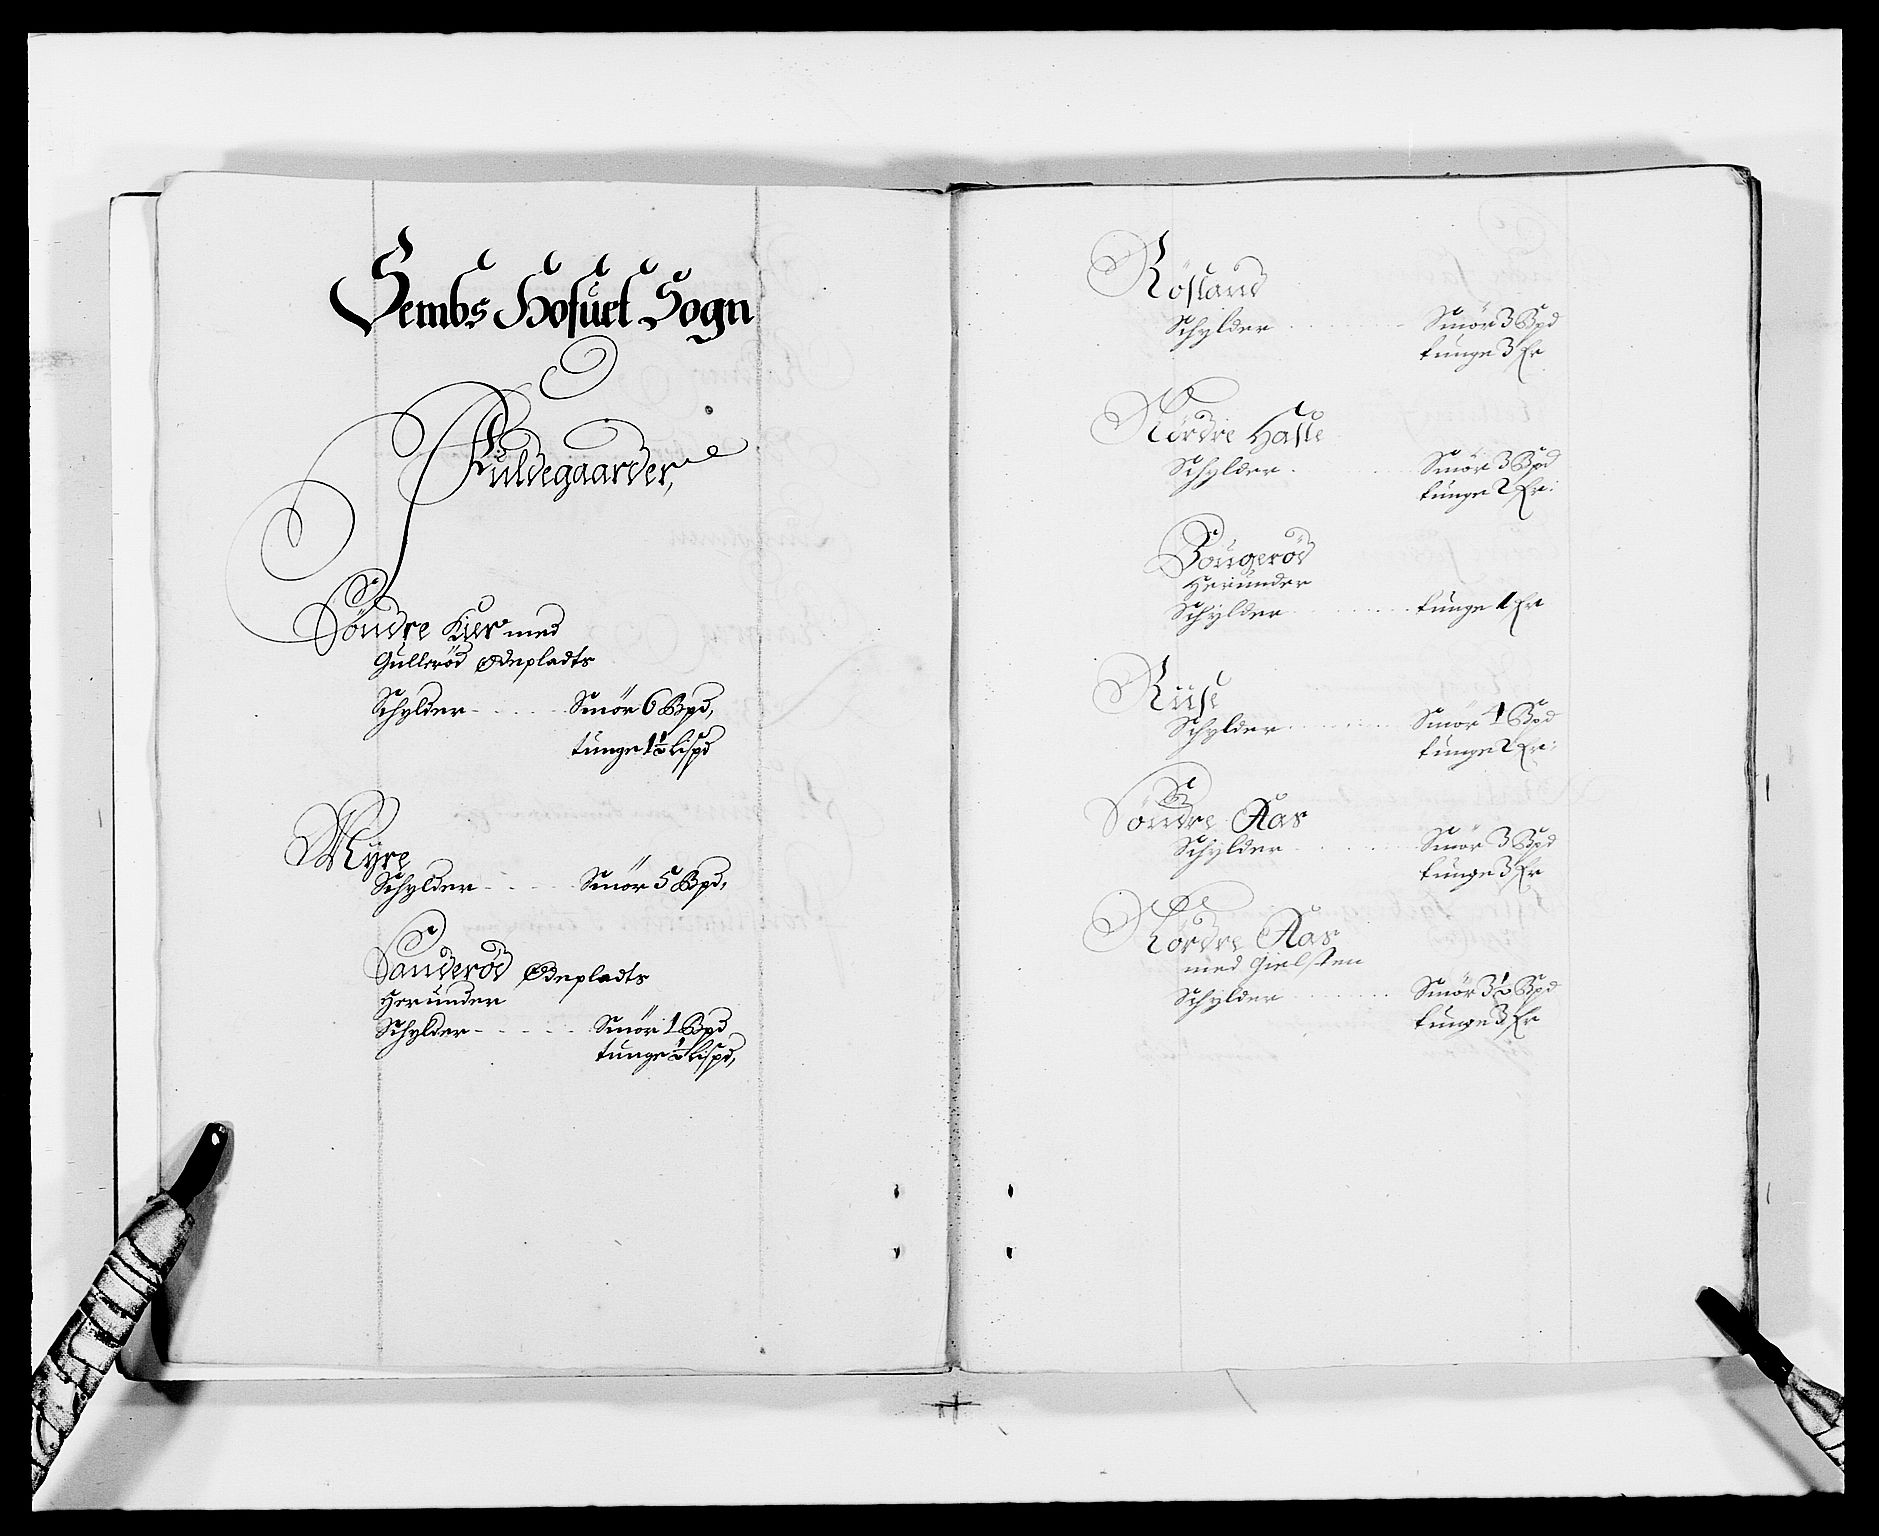 Sembs Hofuet Sogn
Fuldegaarder,
Söndre Kier med
Gulleröd Ödepladts
Schylder - - - - Smör 6 Bpd,
tunge 1½ Lispd
Myre
Schylder - - - - Smör 5 Bpd,
Sanderöd Ödepladts
Herunder
Schylder - - - - - Smör 1 Bpd
tunge ½ Lispd,
Rösland
Schylder - - - - - Smör 3 Bpd
tunge 3 Fr
Nördre Hasle
Schylder - - - - - Smör 3 Bpd
tunge 2 Fr:
Bougeröd
Herunder
Schylder - - - - - tunge 1 Fr
Riise
Schylder - - - - - Smör 4 Bpd
tunge 2 Fr:
Söndre Aas
Schylder - - - - - Smör 3 Bpd
tunge 3 Fr
Nördre Aas
med Gielsten
Schylder - - - - - Smör 3½ Bpd
tunge 3 Fr